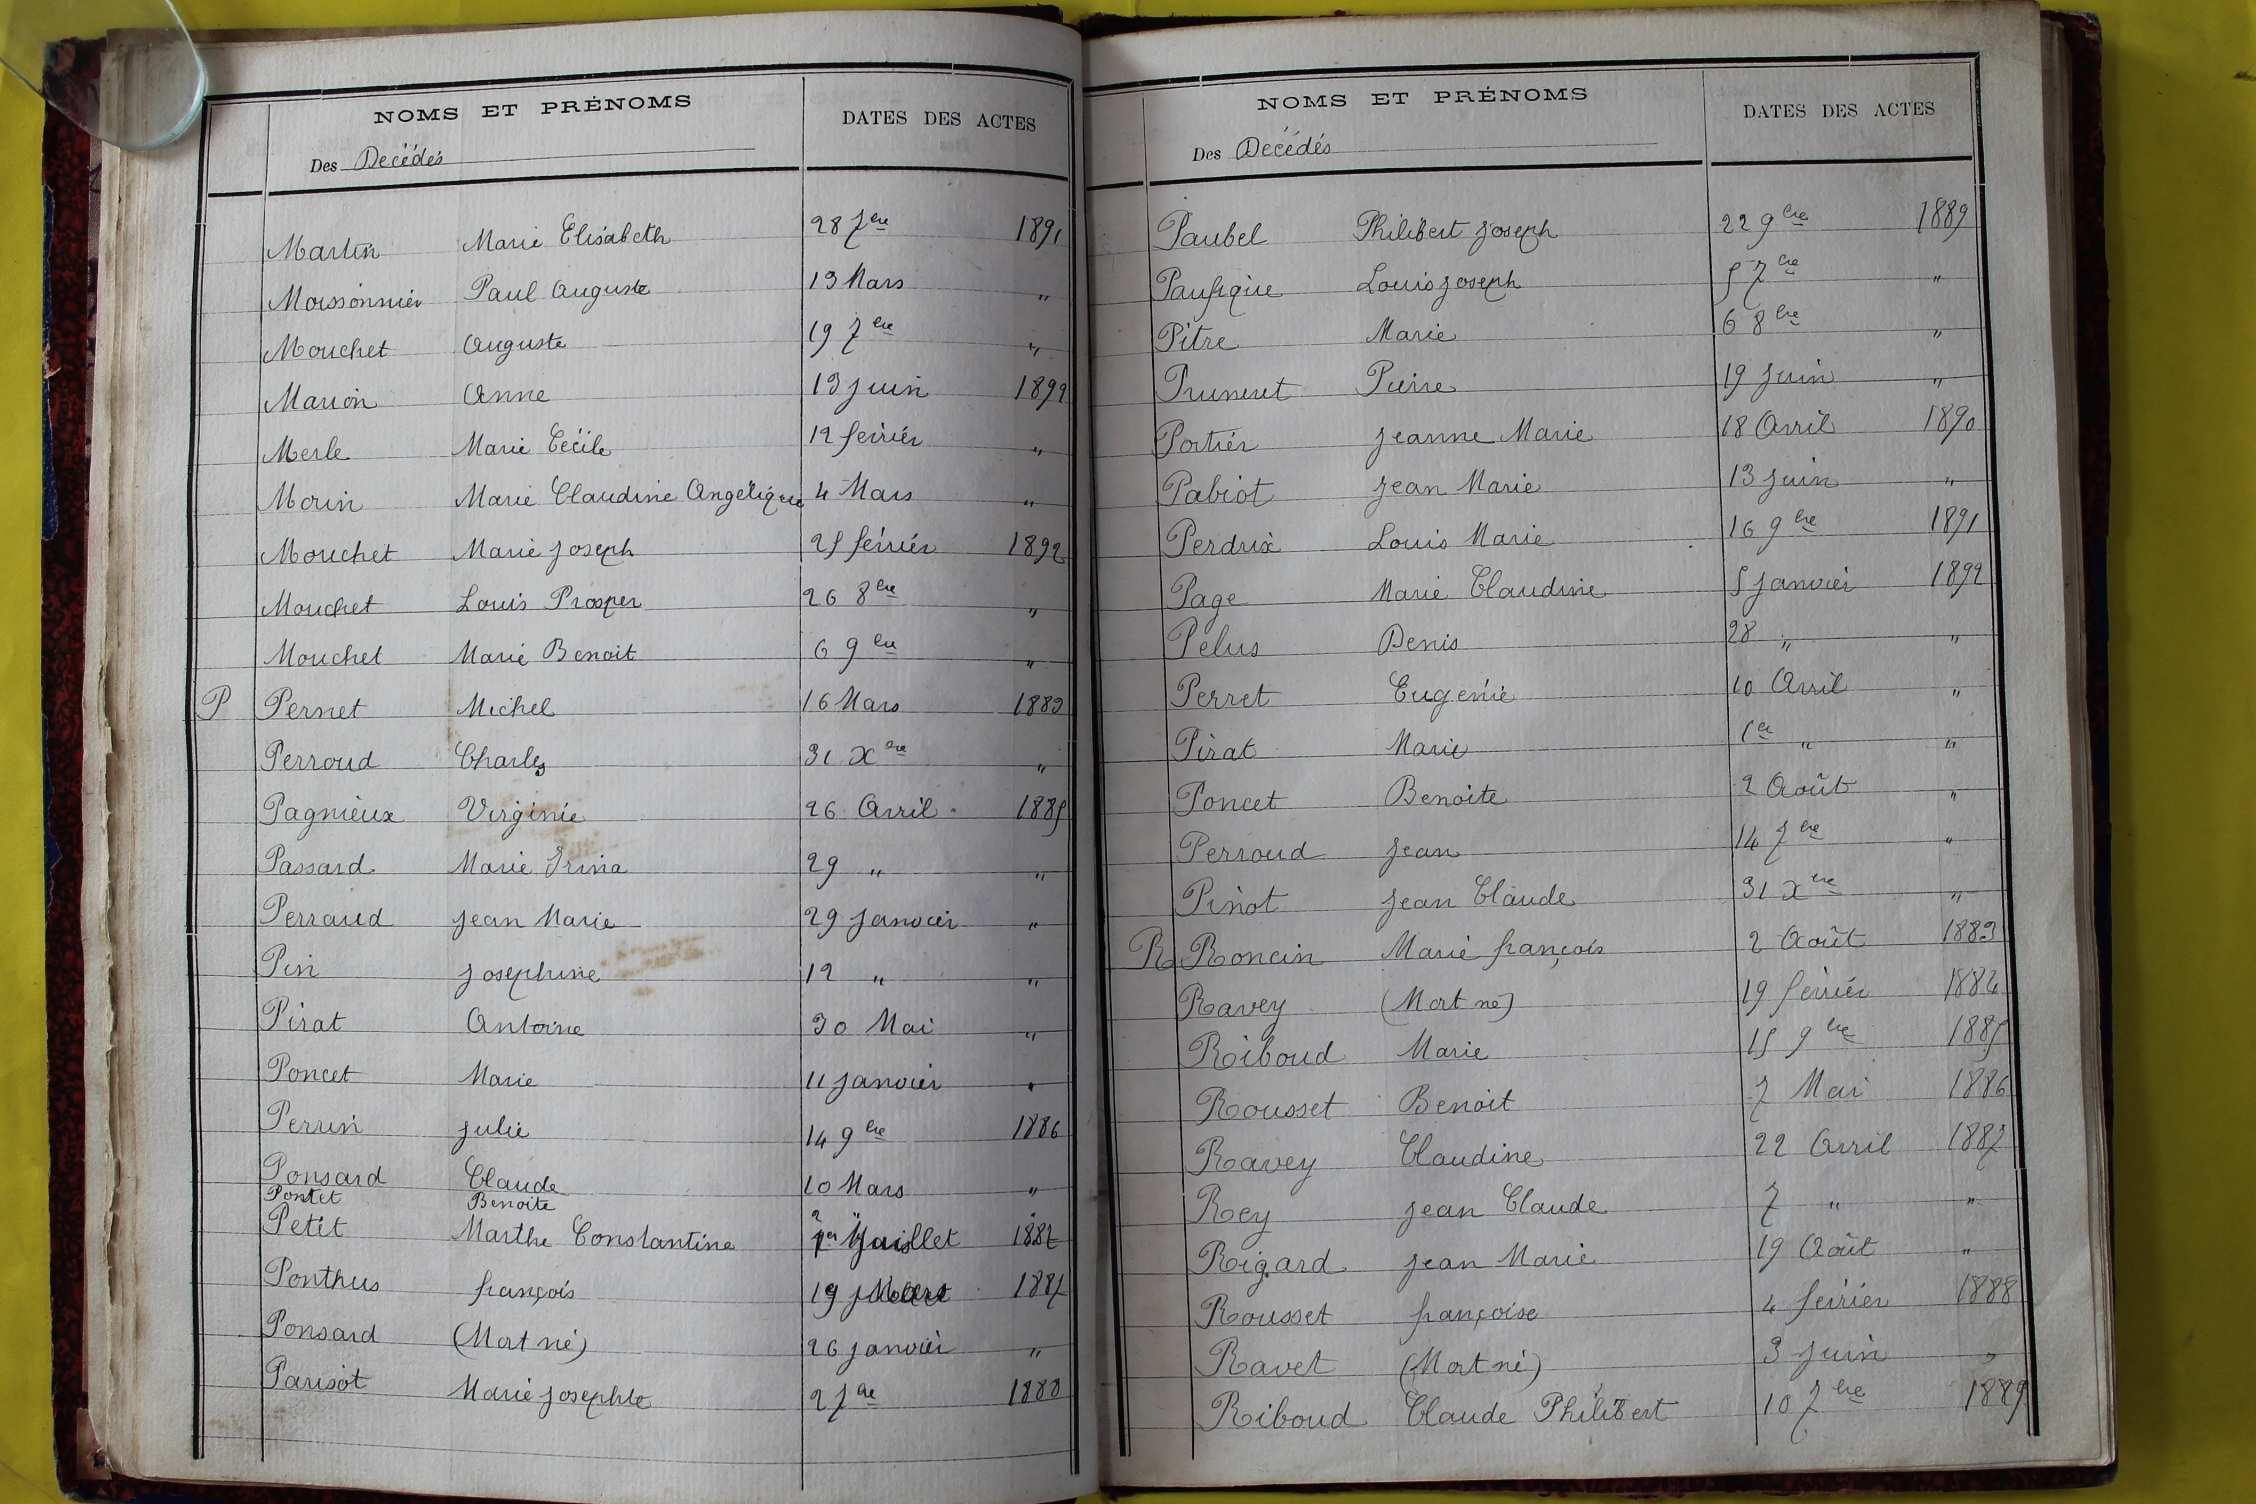 NOMS ET PRÉNOMS DATES DES ACTES
Des Décédés
Martin Marie Elisabeth 28 7bre 1891
Moissonnier Paul Auguste 13 Mars "
Mouchet Auguste 19 7bre "
Marion Anne 13 juin 1892
Merle Marie Cécile 12 février "
Morin Marie Claudine Angélique 4 Mars "
Mouchet Marie Joseph 25 février 1892
Mouchet Louis Prosper 26 8bre "
Mouchet Marie Benoit 6 9bre "
P Pernet Michel 16 Mars 1883
Perroud Charles 31 Xbre "
Pagnieux Virginie 26 Avril 1885
Passard Marie Irina 29 " "
Perraud Jean Marie 29 Janvier "
Pin Joséphine 12 " "
Pirat Antoine 30 Mai "
Poncet Marie 11 Janvier "
Perrin Julie 14 9bre 1886
Ponsard Claude 10 Mars "
Pontet Benoite 2 " "
Petit Marthe Constantine 1er Juillet 1887
Ponthus françois 19 1887
Ponsard (Mort né) 26 janvier "
Parisot Marie Josephte 2 7bre 1888
NOMS ET PRÉNOMS DATES DES ACTES
Des Décédés
Paubel Philibert Joseph 22 9bre 1889
Paufique Louis Joseph 5 7bre "
Pitre Marie 6 8bre "
Pruneret Pierre 19 Juin "
Portier Jeanne Marie 18 Avril 1890
Pabiot Jean Marie 13 Juin "
Perdrix Louis Marie 16 9bre 1891
Page Marie Claudine 5 Janvier 1892
Pelus Denis 28 " "
Perret Eugénie 10 Avril "
Pirat Marie 1er " "
Poncet Benoite 2 Août "
Perroud Jean 14 7bre "
Pinot Jean Claude 31 Xbre "
R Roncin Marie françois 2 Août 1883
Ravey (Mort né) 19 février 1884
Riboud Marie 15 9bre 1885
Rousset Benoit 7 Mai 1886
Ravey Claudine 22 Avril 1887
Rey Jean Claude 7 " "
Rigard Jean Marie 19 Août "
Rousset françoise 4 février 1888
Ravet (Mort né) 3 Juin "
Riboud Claude Philibert 10 7bre 1889